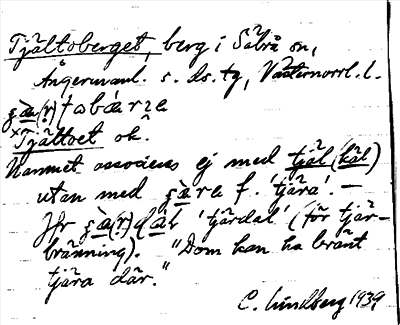 Tjältoberget, berg i Säbrå sn,
Ångermanl. s. ds. tg, Västernorrl. l.
ṣa̱(ṛ)tobárǥe
×Tjältoet ok.
Namnet associeras ej med tjäl (käl)
utan med ṣa̱ra f. 'tjära'. —
Jfr ṣa̱(ṛ)da̱l 'tjärdal' (för tjär-
bränning). "Dom kan ha bränt
tjära där."
C. Lindberg 1939